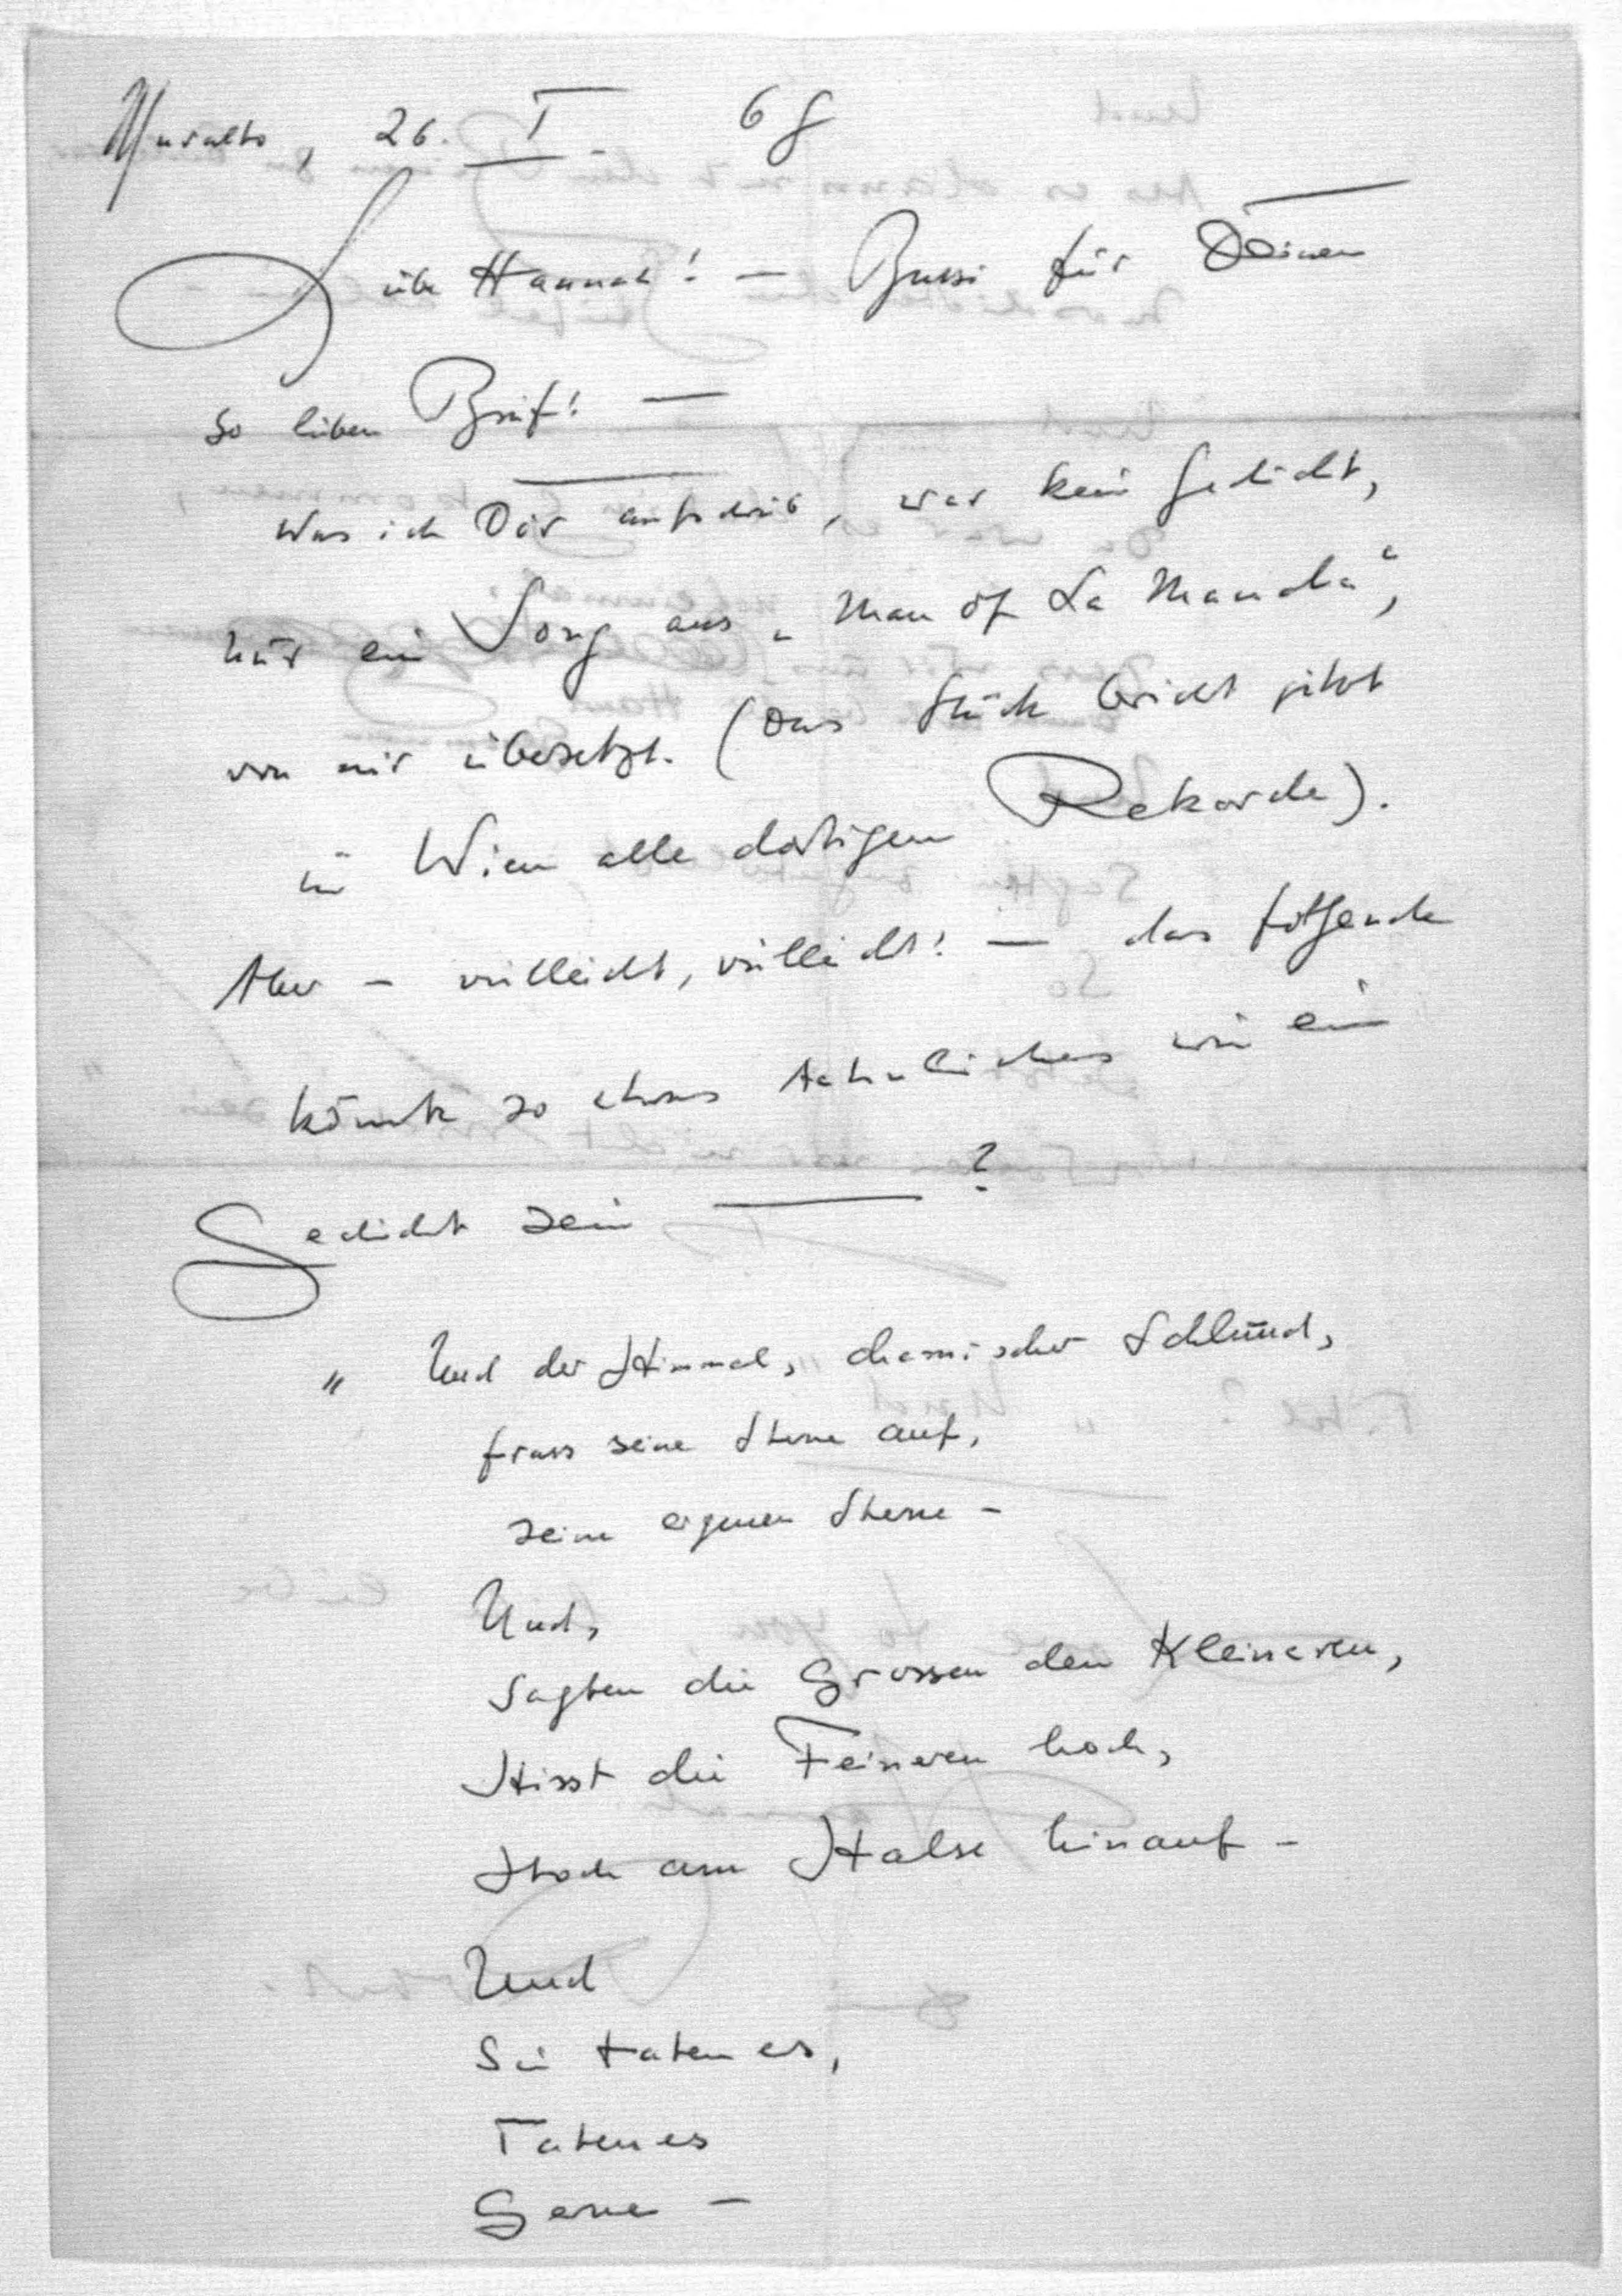 Muralto, 26. I. 68
Liebe Hannah! — Bussi für Deinen
so lieben Brief! —
Was ich Dir aufschrieb, war kein Gedicht,
nur ein Song aus „Man of La Mancha“,
von mir übersetzt. (Das Stück bricht jetzt
in Wien alle dortigen Rekorde).
Aber – vielleicht, vielleicht! — das folgende
könnte so etwas Aehnliches wie ein
Gedicht sein — ?
„Und der Himmel, chemischer Schlund,
frass seine Sterne auf,
seine eigenen Sterne –
Und,
Sagten die Grossen den Kleineren,
Hisst die Feineren hoch,
Hoch am Halse hinauf –
Und
Sie taten es,
Taten es
Gerne –